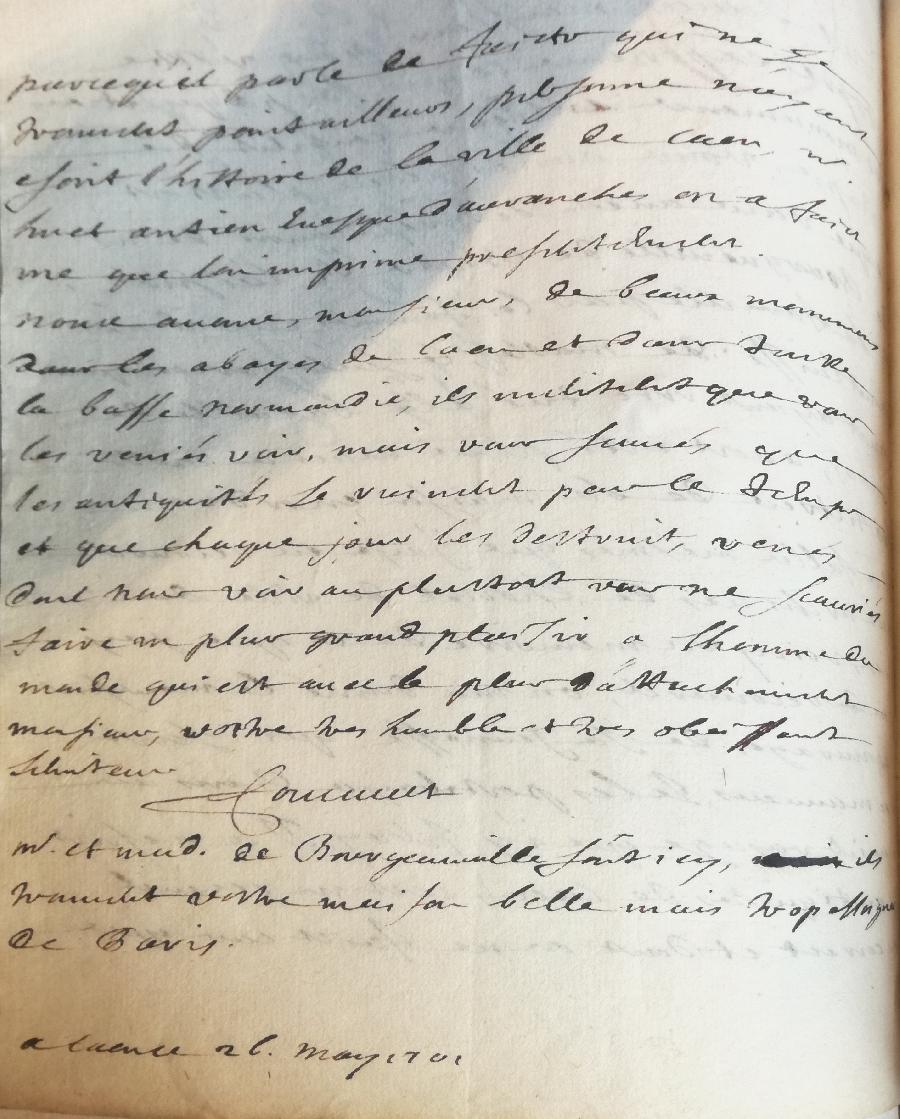 parcequil parle de faicts qui ne se
trouvent point ailleurs, personne n'ayant
escrit l'histoire de la ville de caen, mr
huet antien Evesque d'avranches en a faict
une que lon imprime presentement
nous avons, monsieur, de beaux monumens
dans les abayes de Caen et dans toute
la basse normandie, ils meritent que vous
les veniés voir, mais vous scavés que
les antiquités se ruinent par le temps
et que chaque jour les destruit, venés
donc nous voir au plustost vous ne scauriés
faire un plus grand plaisir a lhomme du
monde qui est avec le plus d'attachement
monsieur, vostre tres humble et tres obeissant
serviteur
Foucault
mr. et mad. de Bourgeauville sont icy, ils
trouvent vostre maison belle mais trop esloignée
de Paris.
a caen ce 26. may 1701